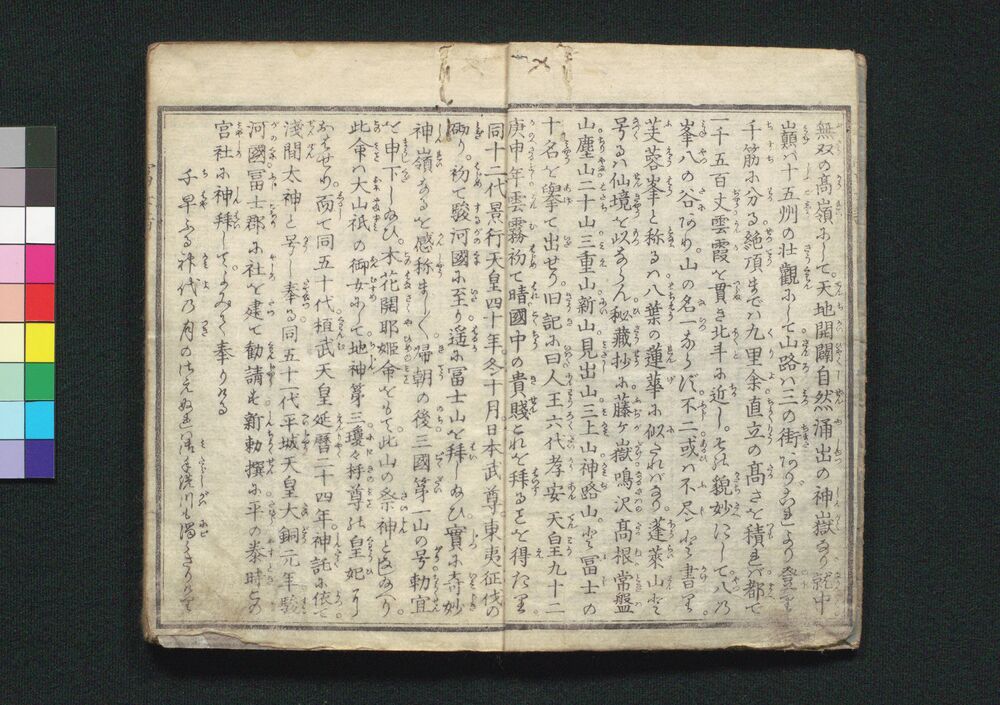 無双の高嶺にして天地開闢自然涌出の神嶽なり就中
山巓ハ十五州の壮觀にして山路ハ三の街ありこれより登り
千筋に分る絶頂までハ九里余直立の高さを積れバ都て
一千五百丈雲霞を貫き北斗に近しその貌妙にして八の
峯八の谷あり山の名一ならず不二或ハ不尽と書り
芙蓉峯と称るハ八葉の蓮華に似たればなり蓬萊山と
号るハ仙境を以ならん秘藏抄に藤ヶ嶽鳴沢高根常盤
山塵山二十山三重山新山見出山三上山神路山と冨士の
十名を擧て出せり旧記に曰人王六代孝安天皇九十二
庚申年雲霧初て晴國中の貴賤これを拜ることを得たり
同十二代景行天皇四十年冬十月日本武尊東夷征伐の
砌り初て駿河國に至り遥に冨士山を拜し給ひ實に奇妙
神嶺なるを感称ましまし帰朝の後三國第一山の号勅宣
を申下し給ひ木花開耶姫命をもて此山の祭神と崇給へり
此命ハ大山祇の御女にて地神第三瓊々杵尊の皇妃なり
おはせり而て同五十代桓武天皇延暦二十四年神託に依て
淺間大神と号し奉る同五十一代平城天皇大銅元年駿
河國冨士郡に社を建て勧請す新勅撰に平の泰時この
宮社に神拜してよみて奉りける
千早ふる神代の月のさえぬれば御手洗川も濁らざりけり